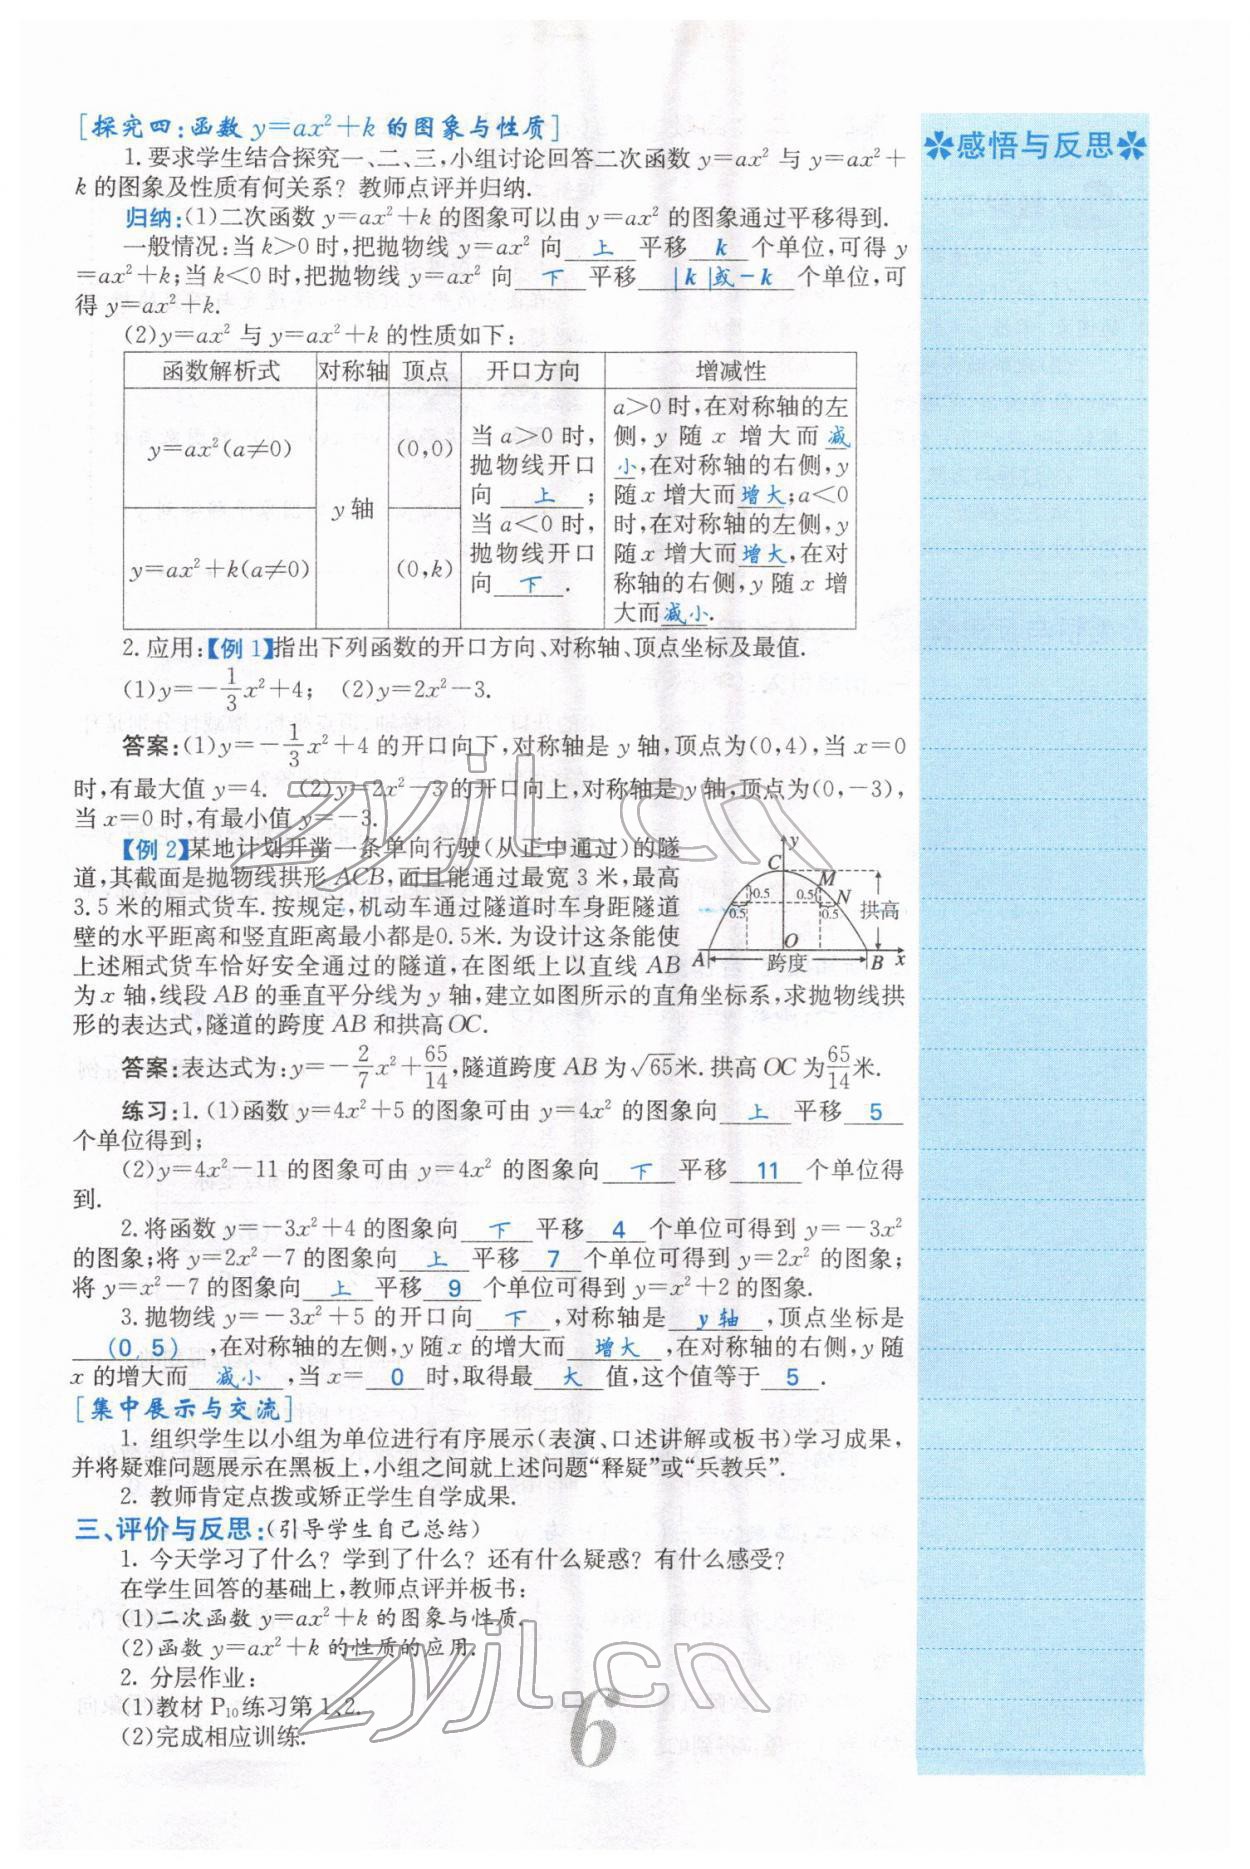 [探究四:函数 y=ax²+k 的图象与性质]
1.要求学生结合探究一、二、三,小组讨论回答二次函数 y=ax² 与 y=ax²+
k 的图象及性质有何关系? 教师点评并归纳.
归纳:(1)二次函数 y=ax²+k 的图象可以由 y=ax² 的图象通过平移得到.
一般情况:当 k>0 时,把抛物线 y=ax² 向 上 平移 k 个单位,可得 y
=ax²+k;当 k<0 时,把抛物线 y=ax² 向 下 平移 |k|或-k 个单位,可
得 y=ax²+k.
(2)y=ax² 与 y=ax²+k 的性质如下:
函数解析式 对称轴 顶点 开口方向 增减性
y=ax²(a≠0)
y=ax²+k(a≠0)
y 轴
(0,0)
(0,k)
当 a>0 时,
抛物线开口
向 上 ;
当 a<0 时,
抛物线开口
向 下 .
a>0 时,在对称轴的左
侧,y 随 x 增大而 减
小,在对称轴的右侧,y
随 x 增大而 增大;a<0
时,在对称轴的左侧,y
随 x 增大而 增大,在对
称轴的右侧,y 随 x 增
大而 减小.
2.应用:【例 1】指出下列函数的开口方向、对称轴、顶点坐标及最值.
(1)y=-1/3x²+4; (2)y=2x²-3.
答案:(1)y=-1/3x²+4 的开口向下,对称轴是 y 轴,顶点为(0,4),当 x=0
时,有最大值 y=4. (2)y=2x²-3的开口向上,对称轴是 y 轴,顶点为(0,-3),
当 x=0 时,有最小值 y=-3.
【例 2】某地计划开凿一条单向行驶(从正中通过)的隧
道,其截面是抛物线拱形 ACB,而且能通过最宽 3 米,最高
3.5 米的厢式货车.按规定,机动车通过隧道时车身距隧道
壁的水平距离和竖直距离最小都是0.5米.为设计这条能使
上述厢式货车恰好安全通过的隧道,在图纸上以直线 AB
为 x 轴,线段 AB 的垂直平分线为 y 轴,建立如图所示的直角坐标系,求抛物线拱
形的表达式,隧道的跨度 AB 和拱高 OC.
y
C
M
N
0.5
0.5
0.5
0.5
拱高
O
A
跨度
B
x
答案:表达式为:y=-2/7x²+65/14,隧道跨度 AB 为√65米.拱高 OC 为65/14米.
练习:1.(1)函数 y=4x²+5 的图象可由 y=4x² 的图象向 上 平移 5
个单位得到;
(2)y=4x²-11 的图象可由 y=4x² 的图象向 下 平移 11 个单位得
到.
2.将函数 y=-3x²+4 的图象向 下 平移 4 个单位可得到 y=-3x²
的图象;将 y=2x²-7 的图象向 上 平移 7 个单位可得到 y=2x² 的图象;
将 y=x²-7 的图象向 上 平移 9 个单位可得到 y=x²+2 的图象.
3.抛物线 y=-3x²+5 的开口向 下 ,对称轴是 y 轴 ,顶点坐标是
(0,5) ,在对称轴的左侧,y 随 x 的增大而 增大 ,在对称轴的右侧,y 随
x 的增大而 减小 ,当 x= 0 时,取得最 大 值,这个值等于 5 .
[集中展示与交流]
1. 组织学生以小组为单位进行有序展示(表演、口述讲解或板书)学习成果,
并将疑难问题展示在黑板上,小组之间就上述问题“释疑”或“兵教兵”.
2. 教师肯定点拨或矫正学生自学成果.
三、评价与反思:(引导学生自己总结)
1. 今天学习了什么? 学到了什么? 还有什么疑惑? 有什么感受?
在学生回答的基础上,教师点评并板书:
(1)二次函数 y=ax²+k 的图象与性质.
(2)函数 y=ax²+k 的性质的应用.
2. 分层作业:
(1)教材 P₁₀ 练习第 1、2.
(2)完成相应训练.
6
感悟与反思
zyjl.cn
zyjl.cn